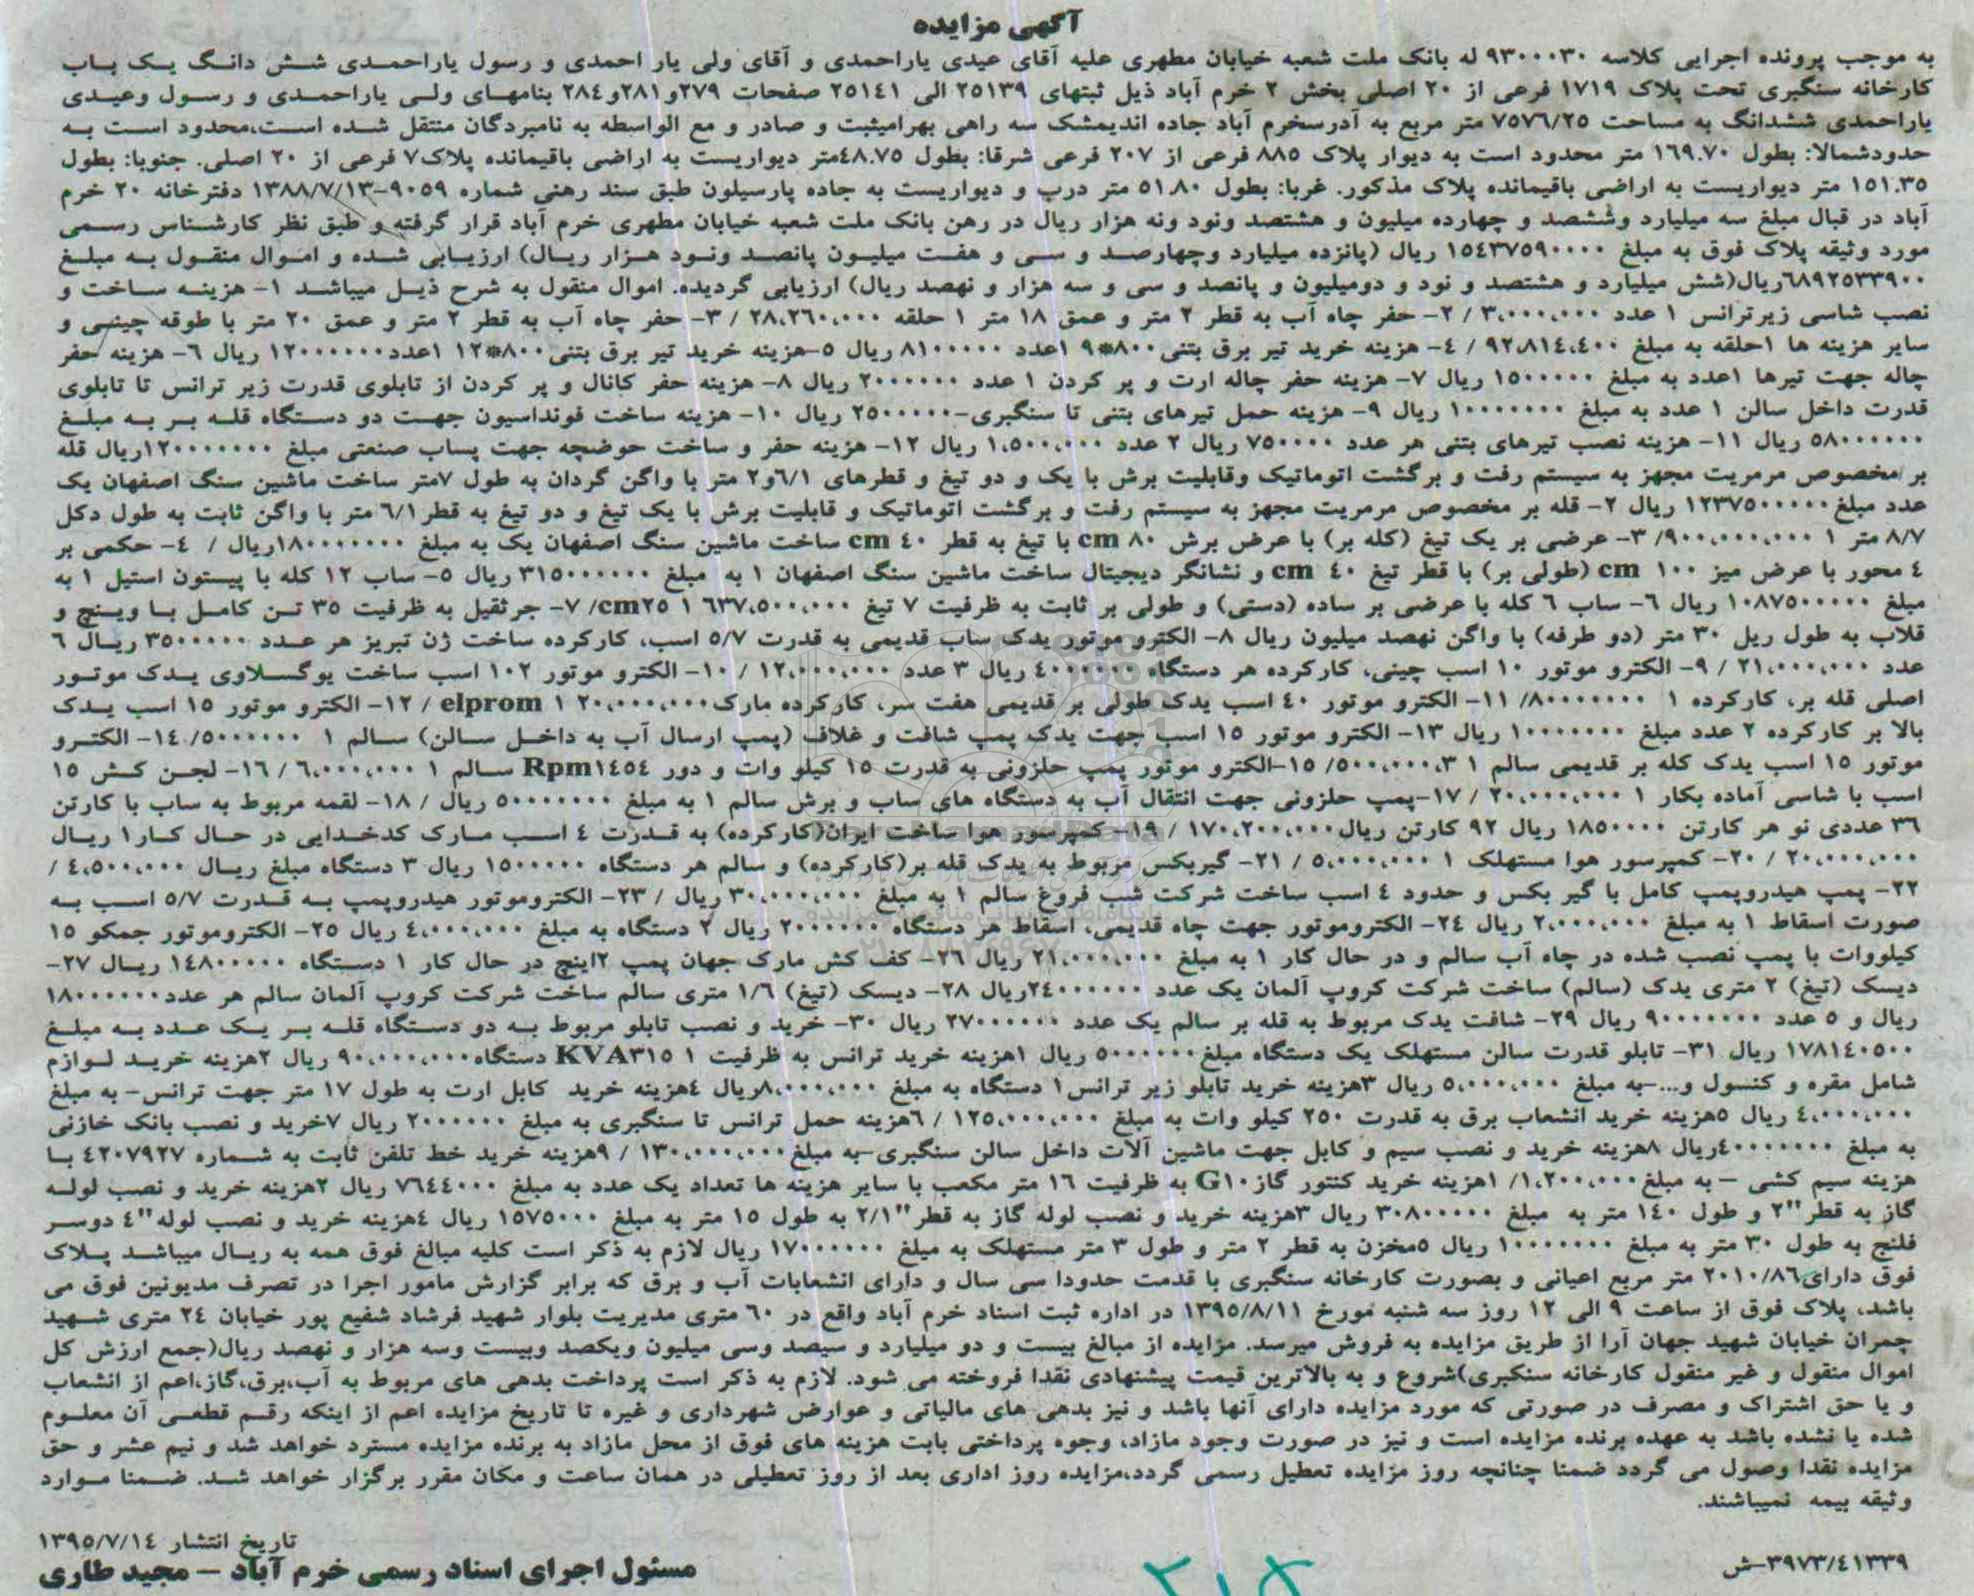 آگهی مزایده
به موجب پرونده اجرایی کلاسه ۹۳۰۰۰۳۰ له بانک ملت شعبه خیابان مطهری علیه آقای عیدی یاراحمدی و آقای ولی یار احمدی و رسول یاراحمدی شش دانگ یک باب
کارخانه سنگبری تحت پلاک ۱۷۱۹ فرعی از ۲۰ اصلی بخش ۲ خرم آباد ذیل ثبتهای ۲۵۱۳۹ الی ۲۵۱٤۱ صفحات ۲۷۹و۲۸۱و۲۸٤ بنامهای ولی یاراحمدی و رسول وعیدی
یاراحمدی ششدانگ به مساحت ۷۵۷٦/۲۵ متر مربع به آدرسخرم آباد جاده اندیمشک سه راهی بهرامیثبت و صادر و مع الواسطه به نامبردگان منتقل شده است،محدود است به
حدودشمالا: بطول ۱٦۹.۷۰ متر محدود است به دیوار پلاک ۸۸۵ فرعی از ۲۰۷ فرعی شرقا: بطول ٤۸.۷۵متر دیواریست به اراضی باقیمانده پلاک۷ فرعی از ۲۰ اصلی. جنوبا: بطول
۱۵۱.۳۵ متر دیواریست به اراضی باقیمانده پلاک مذکور. غربا: بطول ۵۱.۸۰ متر درب و دیواریست به جاده پارسیلون طبق سند رهنی شماره ۹۰۵۹-۱۳۸۸/۷/۱۳ دفترخانه ۲۰ خرم
آباد در قبال مبلغ سه میلیارد وششصد و چهارده میلیون و هشتصد ونود ونه هزار ریال در رهن بانک ملت شعبه خیابان مطهری خرم آباد قرار گرفته و طبق نظر کارشناس رسمی
مورد وثیقه پلاک فوق به مبلغ ۱۵٤۳۷۵۹۰۰۰۰ ریال (پانزده میلیارد وچهارصد و سی و هفت میلیون پانصد ونود هزار ریال) ارزیابی شده و اموال منقول به مبلغ
٦۸۹۲۵۳۳۹۰۰ریال(شش میلیارد و هشتصد و نود و دومیلیون و پانصد و سی و سه هزار و نهصد ریال) ارزیابی گردیده. اموال منقول به شرح ذیل میباشد ۱- هزینه ساخت و
نصب شاسی زیرترانس ۱ عدد ۳،۰۰۰،۰۰۰ / ۲- حفر چاه آب به قطر ۲ متر و عمق ۱۸ متر ۱ حلقه ۲۸،۲٦۰،۰۰۰ / ۳- حفر چاه آب به قطر ۲ متر و عمق ۲۰ متر با طوقه چینی و
سایر هزینه ها ۱حلقه به مبلغ ۹۲،۸۱٤،٤۰۰ / ٤- هزینه خرید تیر برق بتنی ۸۰۰*۹ ۱عدد ۸۱۰۰۰۰۰ ریال ۵-هزینه خرید تیر برق بتنی۸۰۰*۱۲ ۱عدد۱۲۰۰۰۰۰۰ ریال ٦- هزینه حفر
چاله جهت تیرها ۱عدد به مبلغ ۱۵۰۰۰۰۰ ریال ۷- هزینه حفر چاله ارت و پر کردن ۱ عدد ۲۰۰۰۰۰۰ ریال ۸- هزینه حفر کانال و پر کردن از تابلوی قدرت زیر ترانس تا تابلوی
قدرت داخل سالن ۱ عدد به مبلغ ۱۰۰۰۰۰۰۰ ریال ۹- هزینه حمل تیرهای بتنی تا سنگبری-۲۵۰۰۰۰۰ ریال ۱۰- هزینه ساخت فونداسیون جهت دو دستگاه قله بر به مبلغ
۵۸۰۰۰۰۰۰ ریال ۱۱- هزینه نصب تیرهای بتنی هر عدد ۷۵۰۰۰۰ ریال ۲ عدد ۱،۵۰۰،۰۰۰ ریال ۱۲- هزینه حفر و ساخت حوضچه جهت پساب صنعتی مبلغ ۱۲۰۰۰۰۰۰۰ریال قله
بر مخصوص مرمریت مجهز به سیستم رفت و برگشت اتوماتیک وقابلیت برش با یک و دو تیغ و قطرهای ٦/۱و۲ متر با واگن گردان به طول ۷متر ساخت ماشین سنگ اصفهان یک
عدد مبلغ۱۲۳۷۵۰۰۰۰۰ ریال ۲- قله بر مخصوص مرمریت مجهز به سیستم رفت و برگشت اتوماتیک و قابلیت برش با یک تیغ و دو تیغ به قطر٦/۱ متر با واگن ثابت به طول دکل
۸/۷ متر ۱ ۹۰۰،۰۰۰،۰۰۰/ ۳- عرضی بر یک تیغ (کله بر) با عرض برش ۸۰ cm با تیغ به قطر ٤۰ cm ساخت ماشین سنگ اصفهان یک به مبلغ ۱۸۰۰۰۰۰۰۰ریال / ٤- حکمی بر
٤ محور با عرض میز ۱۰۰ cm (طولی بر) با قطر تیغ ٤۰ cm و نشانگر دیجیتال ساخت ماشین سنگ اصفهان ۱ به مبلغ ۳۱۵۰۰۰۰۰۰ ریال ۵- ساب ۱۲ کله با پیستون استیل ۱ به
مبلغ ۱۰۸۷۵۰۰۰۰۰ ریال ٦- ساب ٦ کله با عرضی بر ساده (دستی) و طولی بر ثابت به ظرفیت ۷ تیغ cm۲۵ ۱ ٦۳۷،۵۰۰،۰۰۰/ ۷- جرثقیل به ظرفیت ۳۵ تن کامل با وینچ و
قلاب به طول ریل ۳۰ متر (دو طرفه) با واگن نهصد میلیون ریال ۸- الکترو موتور یدک ساب قدیمی به قدرت ۵/۷ اسب، کارکرده ساخت ژن تبریز هر عدد ۳۵۰۰۰۰۰ ریال ٦
عدد ۲۱،۰۰۰،۰۰۰ / ۹- الکترو موتور ۱۰ اسب چینی، کارکرده هر دستگاه ٤۰۰۰۰۰۰ ریال ۳ عدد ۱۲،۰۰۰،۰۰۰ / ۱۰- الکترو موتور ۱۰۲ اسب ساخت یوگسلاوی یدک موتور
اصلی قله بر، کارکرده ۱ ۸۰۰۰۰۰۰۰/ ۱۱- الکترو موتور ٤۰ اسب یدک طولی بر قدیمی هفت سر، کارکرده مارک elprom ۱ ۲۰،۰۰۰،۰۰۰ / ۱۲- الکترو موتور ۱۵ اسب یدک
بالا بر کارکرده ۲ عدد مبلغ ۱۰۰۰۰۰۰۰ ریال ۱۳- الکترو موتور ۱۵ اسب جهت یدک پمپ شافت و غلاف (پمپ ارسال آب به داخل سالن) سالم ۱ ۵۰۰۰۰۰۰/ ۱٤- الکترو
موتور ۱۵ اسب یدک کله بر قدیمی سالم ۱ ۵۰۰،۰۰۰،۳/ ۱۵-الکترو موتور پمپ حلزونی به قدرت ۱۵ کیلو وات و دور Rpm۱٤۵٤ سالم ۱ ٦،۰۰۰،۰۰۰ / ۱٦- لجن کش ۱۵
اسب با شاسی آماده بکار ۱ ۲۰،۰۰۰،۰۰۰ / ۱۷-پمپ حلزونی جهت انتقال آب به دستگاه های ساب و برش سالم ۱ به مبلغ ۵۰۰۰۰۰۰۰ ریال / ۱۸- لقمه مربوط به ساب با کارتن
۳٦ عددی نو هر کارتن ۱۸۵۰۰۰۰ ریال ۹۲ کارتن ریال۱۷۰،۲۰۰،۰۰۰ / ۱۹- کمپرسور هوا ساخت ایران(کارکرده) به قدرت ٤ اسب مارک کدخدایی در حال کار۱ ریال
۲۰،۰۰۰،۰۰۰ / ۲۰- کمپرسور هوا مستهلک ۱ ۵،۰۰۰،۰۰۰ / ۲۱- گیربکس مربوط به یدک قله بر(کارکرده) و سالم هر دستگاه ۱۵۰۰۰۰۰ ریال ۳ دستگاه مبلغ ریال ٤،۵۰۰،۰۰۰ /
۲۲- پمپ هیدروپمپ کامل با گیر بکس و حدود ٤ اسب ساخت شرکت شب فروغ سالم ۱ به مبلغ ۳۰،۰۰۰،۰۰۰ ریال / ۲۳- الکتروموتور هیدروپمپ به قدرت ۵/۷ اسب به
صورت اسقاط ۱ به مبلغ ۲،۰۰۰،۰۰۰ ریال ۲٤- الکتروموتور جهت چاه قدیمی، اسقاط هر دستگاه ۲۰۰۰۰۰۰ ریال ۲ دستگاه به مبلغ ٤،۰۰۰،۰۰۰ ریال ۲۵- الکتروموتور جمکو ۱۵
کیلووات با پمپ نصب شده در چاه آب سالم و در حال کار ۱ به مبلغ ۲۱،۰۰۰،۰۰۰ ریال ۲٦- کف کش مارک جهان پمپ ۲اینچ در حال کار ۱ دستگاه ۱٤۸۰۰۰۰۰ ریال ۲۷-
دیسک (تیغ) ۲ متری یدک (سالم) ساخت شرکت کروپ آلمان یک عدد ۲٤۰۰۰۰۰۰ریال ۲۸- دیسک (تیغ) ۱/٦ متری سالم ساخت شرکت کروپ آلمان سالم هر عدد۱۸۰۰۰۰۰۰
ریال و ۵ عدد ۹۰۰۰۰۰۰۰ ریال ۲۹- شافت یدک مربوط به قله بر سالم یک عدد ۲۷۰۰۰۰۰۰ ریال ۳۰- خرید و نصب تابلو مربوط به دو دستگاه قله بر یک عدد به مبلغ
۱۷۸۱٤۰۵۰۰ ریال ۳۱- تابلو قدرت سالن مستهلک یک دستگاه مبلغ۵۰۰۰۰۰۰ ریال ۱هزینه خرید ترانس به ظرفیت KVA۳۱۵ ۱ دستگاه۹۰،۰۰۰،۰۰۰ ریال ۲هزینه خرید لوازم
شامل مقره و کنسول و...-به مبلغ ۵،۰۰۰،۰۰۰ ریال ۳هزینه خرید تابلو زیر ترانس۱ دستگاه به مبلغ ۸،۰۰۰،۰۰۰ریال ٤هزینه خرید کابل ارت به طول ۱۷ متر جهت ترانس- به مبلغ
٤،۰۰۰،۰۰۰ ریال ۵هزینه خرید انشعاب برق به قدرت ۲۵۰ کیلو وات به مبلغ ۱۲۵،۰۰۰،۰۰۰ / ٦هزینه حمل ترانس تا سنگبری به مبلغ ۲۰۰۰۰۰۰ ریال ۷خرید و نصب بانک خازنی
به مبلغ ٤۰۰۰۰۰۰۰ریال ۸هزینه خرید و نصب سیم و کابل جهت ماشین آلات داخل سالن سنگبری-به مبلغ۱۳۰،۰۰۰،۰۰۰ / ۹هزینه خرید خط تلفن ثابت به شماره ٤۲۰۷۹۲۷ با
هزینه سیم کشی – به مبلغ۱،۲۰۰،۰۰۰/ ۱هزینه خرید کنتور گازG۱۰ به ظرفیت ۱٦ متر مکعب با سایر هزینه ها تعداد یک عدد به مبلغ ۷٦٤٤۰۰۰ ریال ۲هزینه خرید و نصب لوله
گاز به قطر"۲ و طول ۱٤۰ متر به مبلغ ۳۰۸۰۰۰۰۰ ریال ۳هزینه خرید و نصب لوله گاز به قطر"۲/۱ به طول ۱۵ متر به مبلغ ۱۵۷۵۰۰۰ ریال ٤هزینه خرید و نصب لوله"٤ دوسر
فلنج به طول ۳۰ متر به مبلغ ۱۰۰۰۰۰۰۰ ریال ۵مخزن به قطر ۲ متر و طول ۳ متر مستهلک به مبلغ ۱۷۰۰۰۰۰۰ ریال لازم به ذکر است کلیه مبالغ فوق همه به ریال میباشد پلاک
فوق دارای۲۰۱۰/۸٦ متر مربع اعیانی و بصورت کارخانه سنگبری با قدمت حدودا سی سال و دارای انشعابات آب و برق که برابر گزارش مامور اجرا در تصرف مدیونین فوق می
باشد، پلاک فوق از ساعت ۹ الی ۱۲ روز سه شنبه مورخ ۱۳۹۵/۸/۱۱ در اداره ثبت اسناد خرم آباد واقع در ٦۰ متری مدیریت بلوار شهید فرشاد شفیع پور خیابان ۲٤ متری شهید
چمران خیابان شهید جهان آرا از طریق مزایده به فروش میرسد. مزایده از مبالغ بیست و دو میلیارد و سیصد وسی میلیون ویکصد وبیست وسه هزار و نهصد ریال(جمع ارزش کل
اموال منقول و غیر منقول کارخانه سنکبری)شروع و به بالاترین قیمت پیشنهادی نقدا فروخته می شود. لازم به ذکر است پرداخت بدهی های مربوط به آب،برق،گاز،اعم از انشعاب
و یا حق اشتراک و مصرف در صورتی که مورد مزایده دارای آنها باشد و نیز بدهی های مالیاتی و عوارض شهرداری و غیره تا تاریخ مزایده اعم از اینکه رقم قطعی آن معلوم
شده یا نشده باشد به عهده برنده مزایده است و نیز در صورت وجود مازاد، وجوه پرداختی بابت هزینه های فوق از محل مازاد به برنده مزایده مسترد خواهد شد و نیم عشر و حق
مزایده نقدا وصول می گردد ضمنا چنانچه روز مزایده تعطیل رسمی گردد،مزایده روز اداری بعد از روز تعطیلی در همان ساعت و مکان مقرر برگزار خواهد شد. ضمنا موارد
وثیقه بیمه نمیباشند.
تاریخ انتشار ۱۳۹۵/۷/۱٤
۳۹۷۳/٤۱۳۳۹-ش
مسئول اجرای اسناد رسمی خرم آباد – مجید طاری